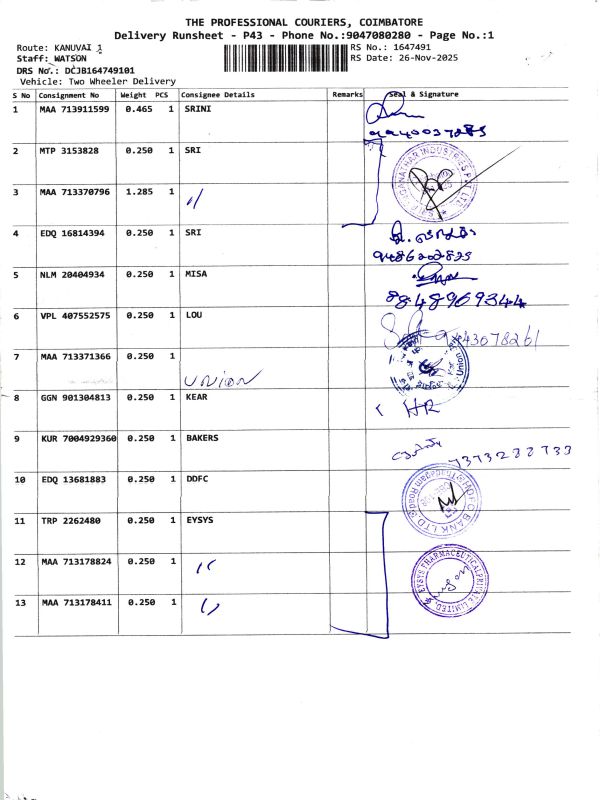 THE PROFESSIONAL COURIERS, COIMBATORE
Delivery Runsheet - P43 - Phone No.:9047080280 - Page No.:1
Route: KANUVAI 1
RS No.: 1647491
Staff: WATSON
RS Date: 26-Nov-2025
DRS No.: DCJB164749101
Vehicle: Two Wheeler Delivery
S No Consignment No Weight PCS Consignee Details Remarks Seal & Signature
1 MAA 713911599 0.465 1 SRINI
2 MTP 3153828 0.250 1 SRI
3 MAA 713370796 1.285 1 "
4 EDQ 16814394 0.250 1 SRI
9486202835
5 NLM 20404934 0.250 1 MISA
8848969344
6 VPL 407552575 0.250 1 LOU
7 MAA 713371366 0.250 1 UNION
8 GGN 901304813 0.250 1 KEAR HR
9 KUR 7004929360 0.250 1 BAKERS
10 EDQ 13681883 0.250 1 DDFC
11 TRP 2262480 0.250 1 EYSYS
12 MAA 713178824 0.250 1 "
EYSYS PHARMACEUTICAL PRIVATE LIMITED
13 MAA 713178411 0.250 1 "